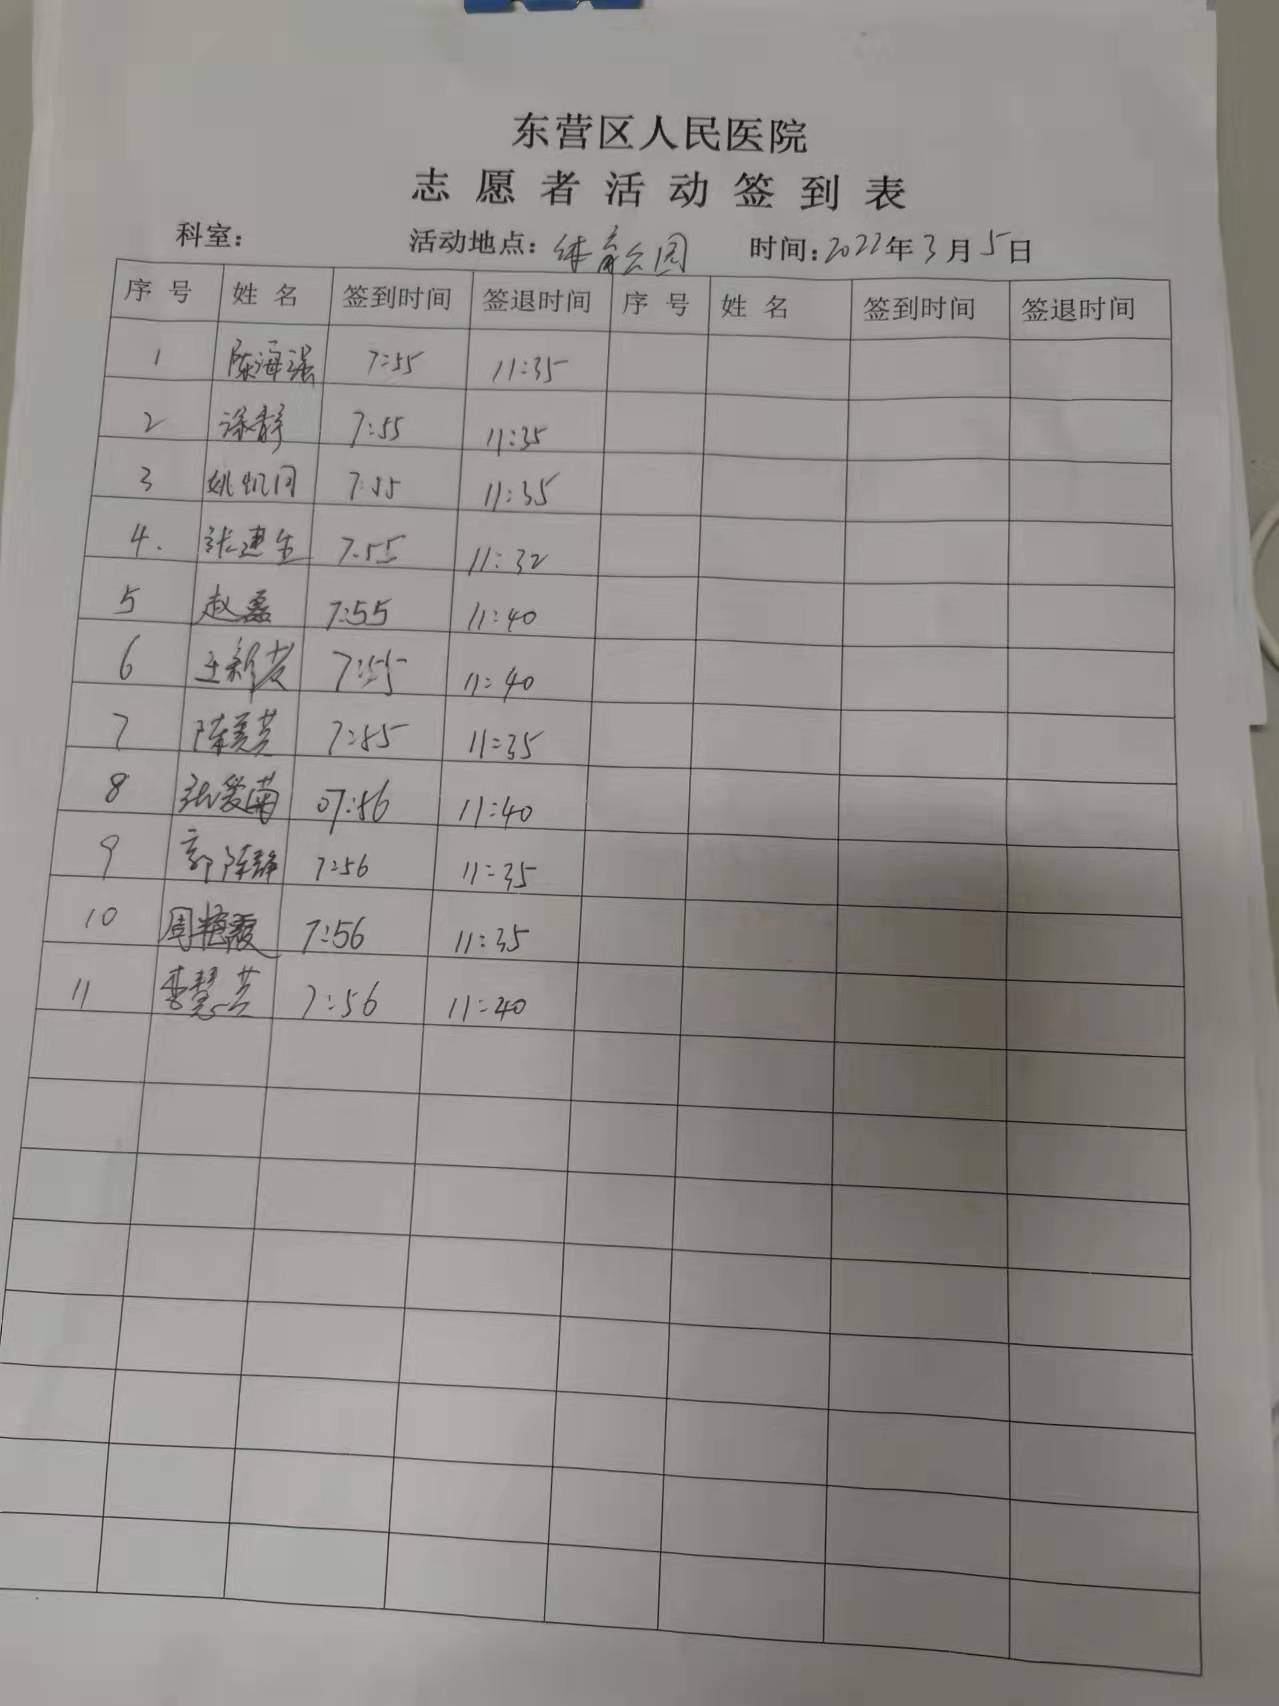 东营区人民医院
志愿者活动签到表
科室： 活动地点：体育公园 时间：2022年3月5日
序号 姓名 签到时间 签退时间 序号 姓名 签到时间 签退时间
1 陈海强 7:55 11:35
2 徐静 7:55 11:35
3 姚 7:55 11:35
4. 张建生 7:55 11:32
5 赵磊 7:55 11:40
6 王新 7:55 11:40
7 陈美芸 7:55 11:35
8 张爱菊 07:56 11:40
9 郭陈静 7:56 11:35
10 周艳霞 7:56 11:35
11 李慧芸 7:56 11:40